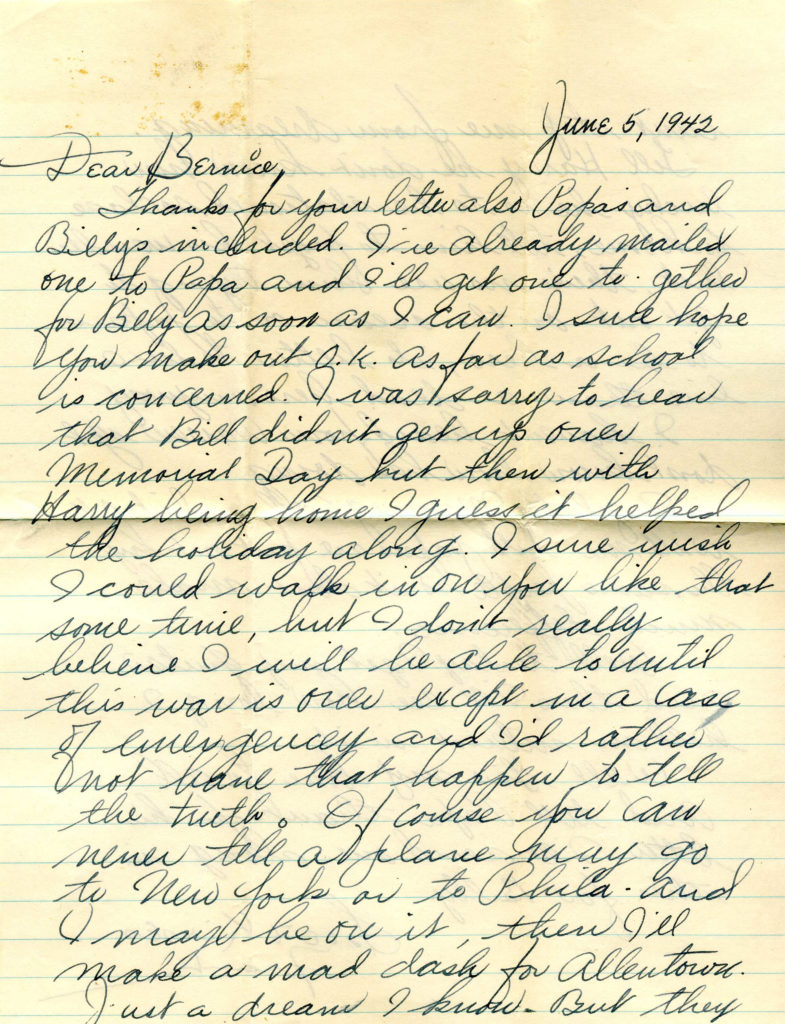 June 5, 1942
Dear Bernice,
Thanks for your letter also Papas and
Billys included. I've already mailed
one to Papa and I'll get one to gether
for Billy as soon as I can. I sure hope
you make out O.K. as far as school
is concerned. I was sorry to hear
that Bill didn't get up over
Memorial Day but then with
Harry being home I guess it helped
the holiday along. I sure wish
I could walk in on you like that
some time, but I don't really
believe I will be able to until
this war is over except in a case
of emergencey and I'd rather
not have that happen to tell
the truth. Of course you can
never tell a plane may go
to New York or to Phila. and
I may be on it, then I'll
make a mad dash for Allentown.
Just a dream I know. But they